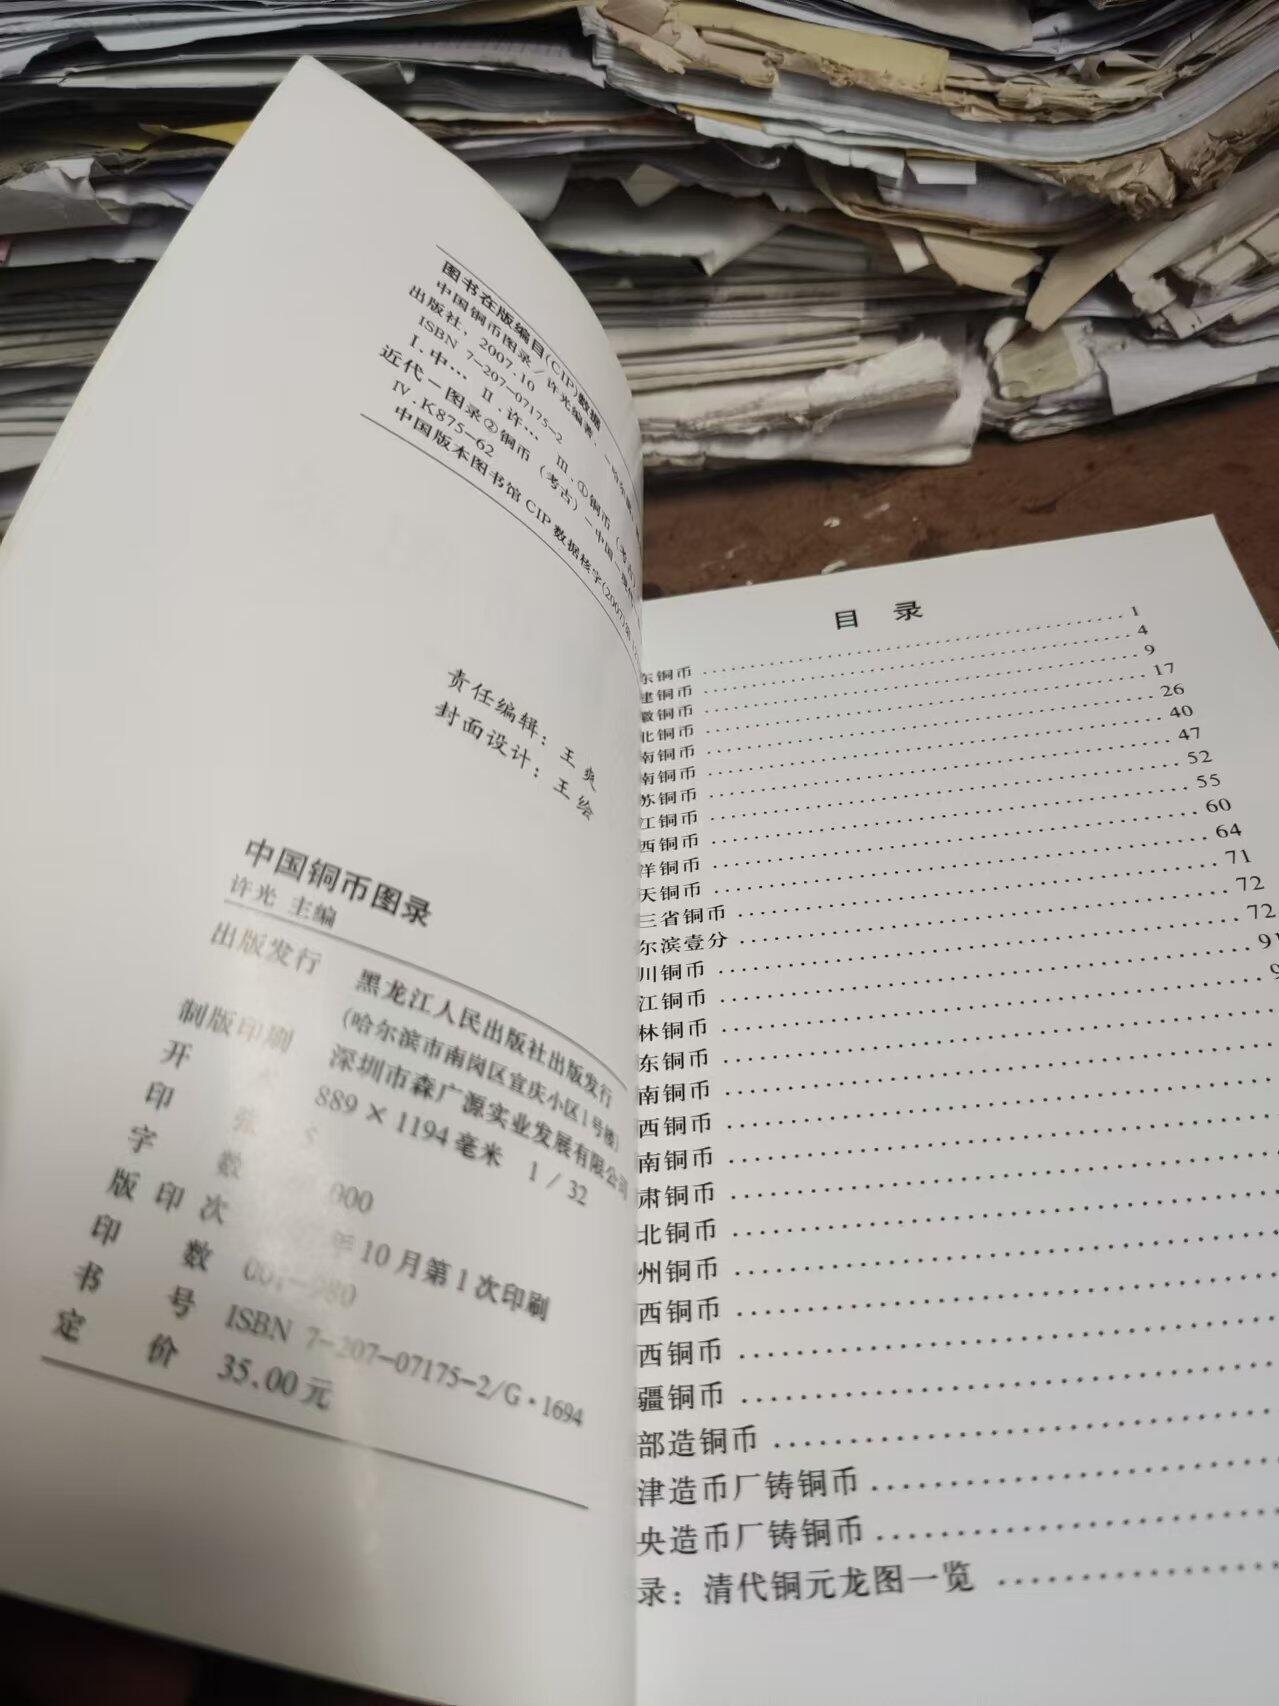 图书在版编目(CIP)数据
中国铜币图录／许光编著．－哈尔滨
出版社，2007.10
ISBN 7-207-07175-2
Ⅰ.中… Ⅱ.许… Ⅲ.①铜币（考古）
近代－图录②铜币（考古）－中国－
Ⅳ.K875-62
中国版本图书馆CIP数据核字(2007)第
责任编辑：王爽
封面设计：王绘
中国铜币图录
许光 主编
出版发行 黑龙江人民出版社出版发行
(哈尔滨市南岗区宣庆小区1号楼)
制版印刷 深圳市森广源实业发展有限公司
开 889×1194毫米 1/32
印 张
字 数 000
版印次 年10月第1次印刷
印 数
书 号 ISBN 7-207-07175-2/G·1694
定 价 35.00元
目 录
东铜币 1
建铜币 4
徽铜币 9
北铜币 17
南铜币 26
南铜币 40
苏铜币 47
江铜币 52
西铜币 55
洋铜币 60
天铜币 64
三省铜币 71
尔滨壹分 72
川铜币 72
江铜币 91
林铜币 9
东铜币
南铜币
西铜币
南铜币
肃铜币
北铜币
州铜币
西铜币
西铜币
疆铜币
部造铜币
津造币厂铸铜币
央造币厂铸铜币
录：清代铜元龙图一览